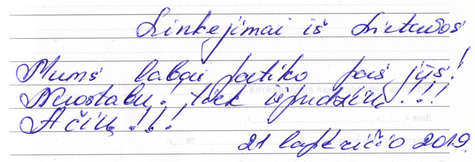 Linkėjimai iš Lietuvos
Mums labai patiko pas jųs!
Nuostabu. tiek įspūdžių!!!
Ačiū!!!
21 lapkričio 2019